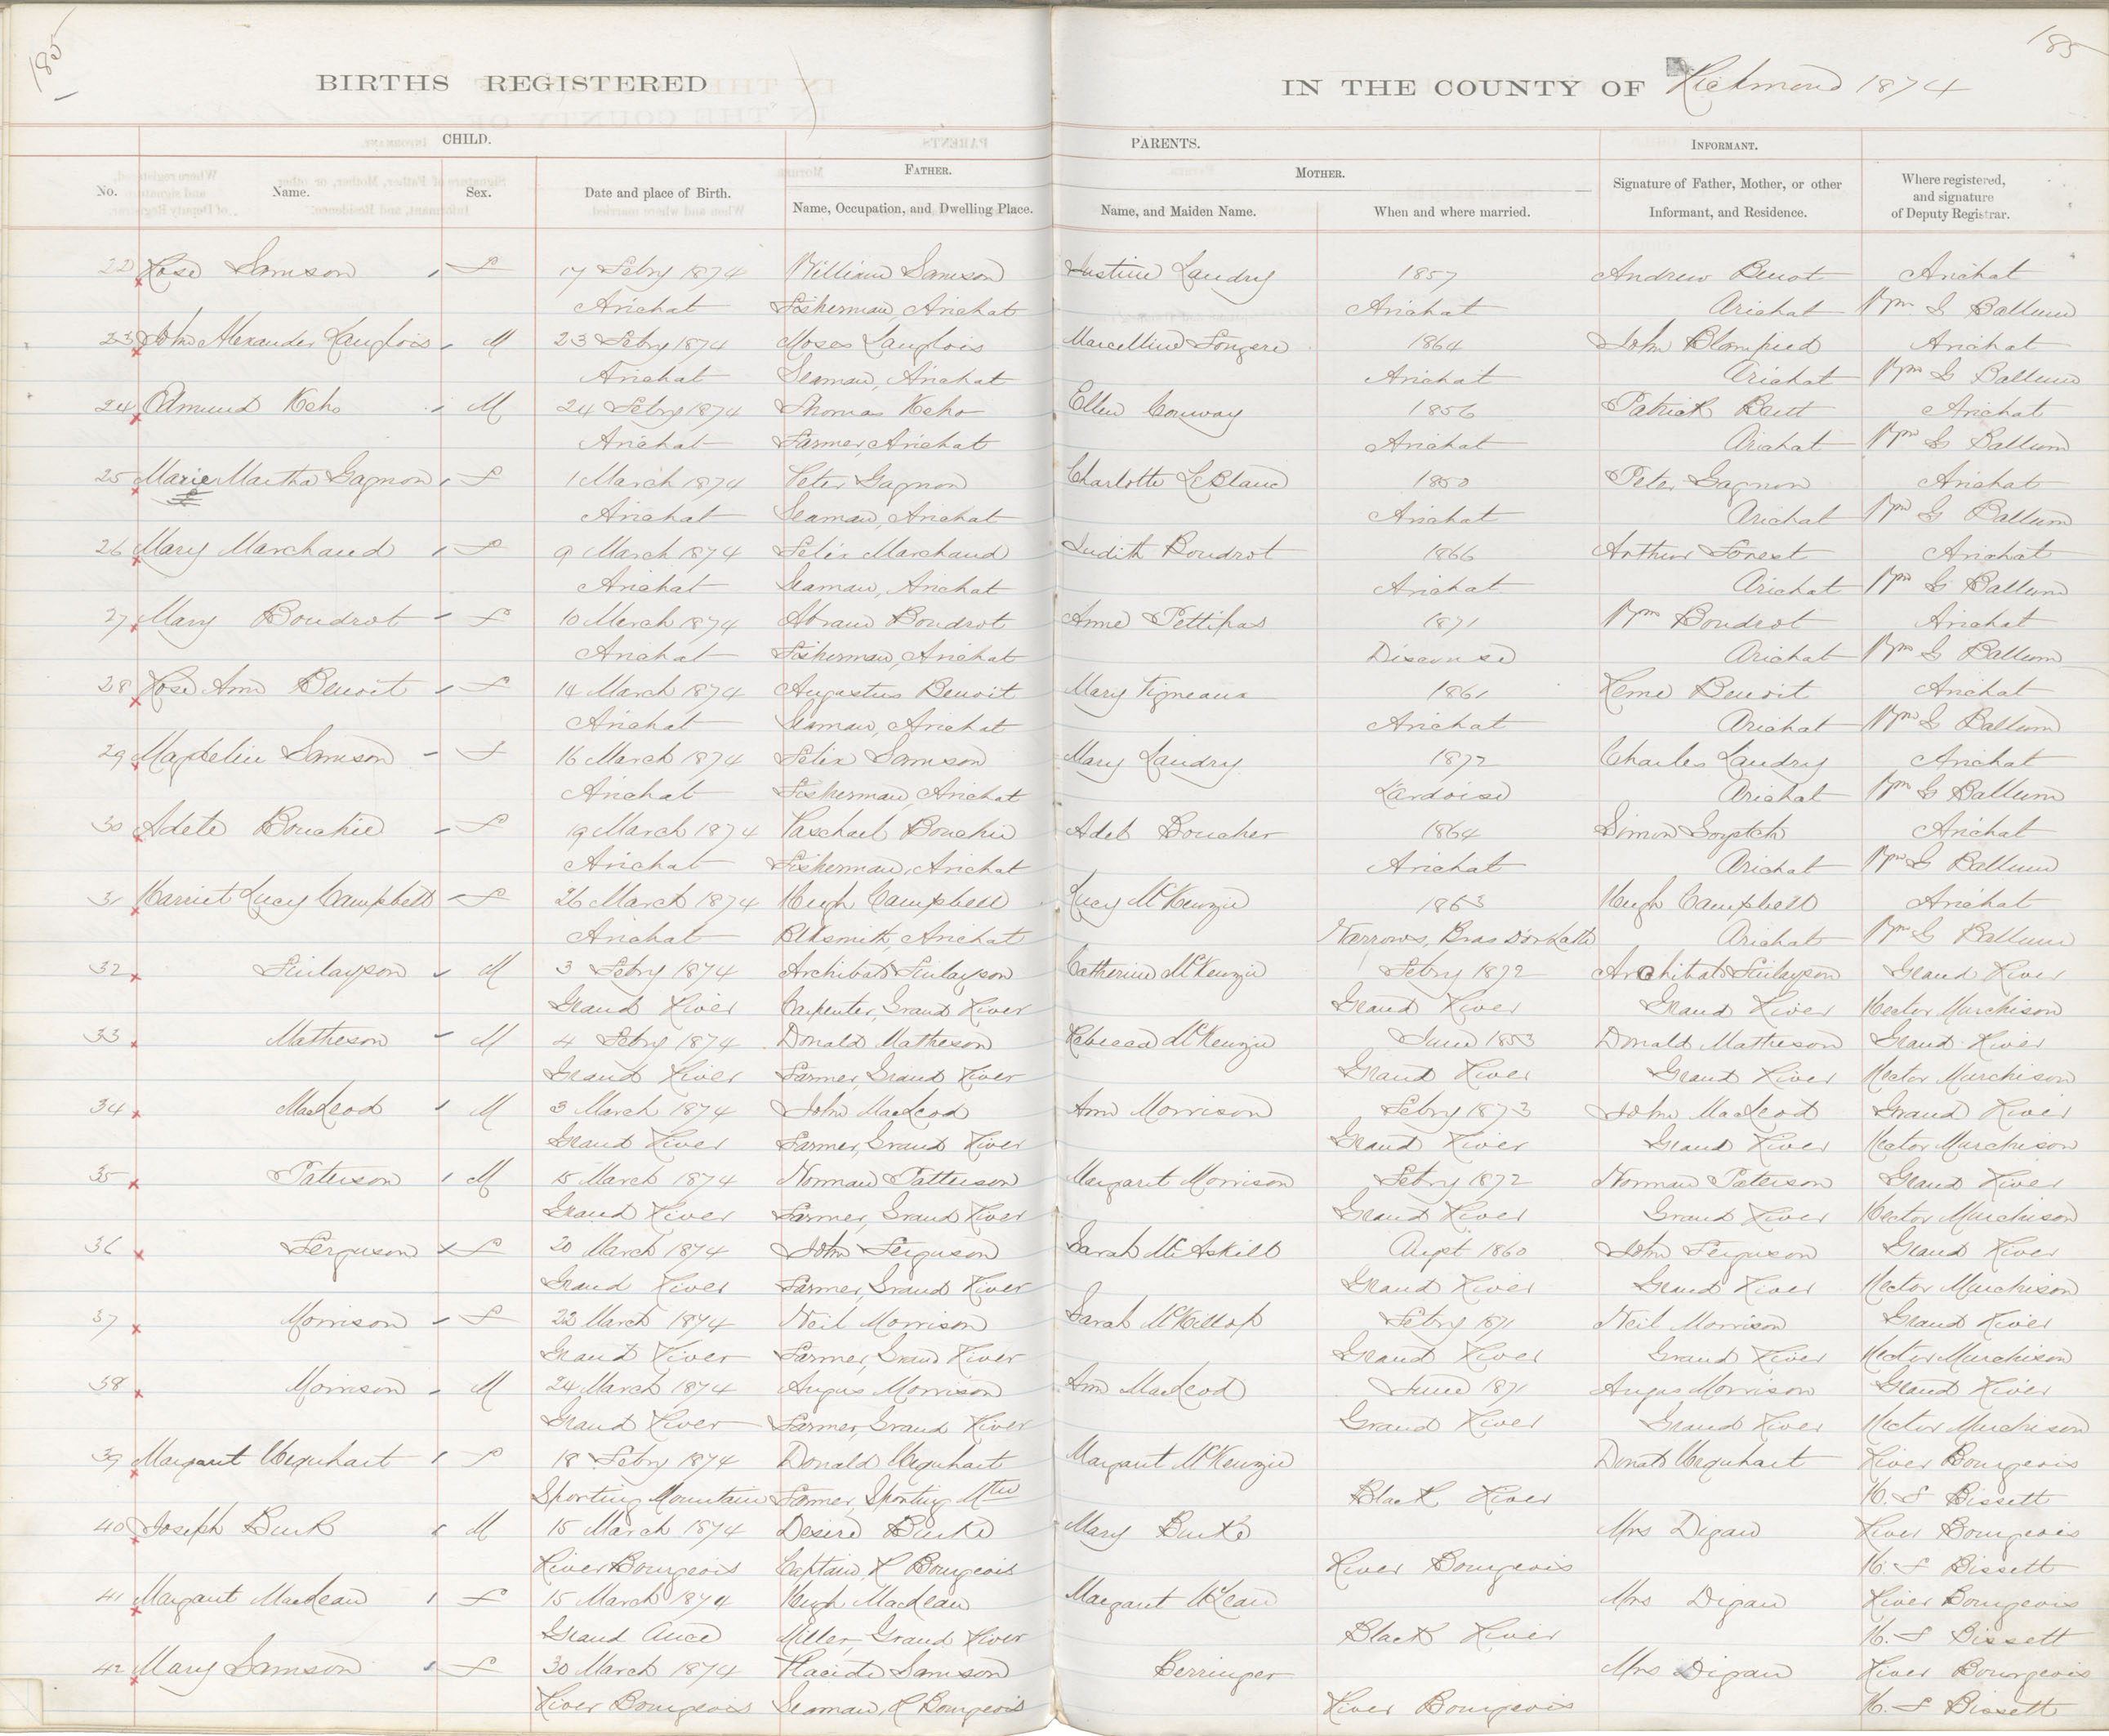 185
185
BIRTHS REGISTERED IN THE COUNTY OF Richmond 1874
CHILD. PARENTS. INFORMANT.
FATHER. MOTHER.
No. Name. Sex. Date and place of Birth. Name, Occupation, and Dwelling Place. Name, and Maiden Name. When and where married. Signature of Father, Mother, or other Informant, and Residence. Where registered, and signature of Deputy Registrar.
22 Rose Samson F 17 Febry 1874 William Samson Justine Landry 1857 Andrew Benot Arichat
Arichat Fisherman, Arichat Arichat Arichat Wm G Ballum
23 John Alexander Langlois M 23 Febry 1874 Moses Langlois Marcelline Fougere 1864 John Blampied Arichat
Arichat Seaman, Arichat Arichat Arichat Wm G Ballum
24 Edmund Keho M 24 Febry 1874 Thomas Keho Ellen Conway 1856 Patrick Brett Arichat
Arichat Farmer, Arichat Arichat Arichat Wm G Ballum
25 Marie Martha Gagnon F 1 March 1874 Peter Gagnon Charlotte LeBlanc 1850 Peter Gagnon Arichat
Arichat Seaman, Arichat Arichat Arichat Wm G Ballum
26 Mary Marchand F 9 March 1874 Felix Marchand Judith Boudrot 1866 Arthur Forest Arichat
Arichat Seaman, Arichat Arichat Arichat Wm G Ballum
27 Mary Boudrot F 10 March 1874 Abram Boudrot Anne Pettipas 1871 Wm Boudrot Arichat
Arichat Fisherman, Arichat Discouse Arichat Wm G Ballum
28 Rose Ann Benoit F 14 March 1874 Augustus Benoit Mary Vigneaux 1861 Reme Benoit Arichat
Arichat Seaman, Arichat Arichat Arichat Wm G Ballum
29 Magdelin Samson F 16 March 1874 Felix Samson Mary Landry 1872 Charles Landry Arichat
Arichat Fisherman, Arichat Lardoise Arichat Wm G Ballum
30 Adele Bouchie F 19 March 1874 Paschael Bouchie Adele Boucher 1864 Simon Arichat
Arichat Fisherman, Arichat Arichat Arichat Wm G Ballum
31 Harriet Lucy Campbell F 26 March 1874 Hugh Campbell Lucy McKenzie 1863 Hugh Campbell Arichat
Arichat Blksmith, Arichat Narrows, Bras Arichat Wm G Ballum
32 Finlayson M 3 Febry 1874 Archibald Finlayson Catherine McKenzie Febry 1872 Archibald Finlayson Grand River
Grand River Carpenter, Grand River Grand River Grand River Hector Murchison
33 Matheson M 4 Febry 1874 Donald Matheson Rebecca McKenzie June 1853 Donald Matheson Grand River
Grand River Farmer, Grand River Grand River Grand River Hector Murchison
34 MacLeod M 3 March 1874 John MacLeod Ann Morrison Febry 1873 John MacLeod Grand River
Grand River Farmer, Grand River Grand River Grand River Hector Murchison
35 Paterson M 15 March 1874 Norman Patterson Margaret Morrison Febry 1872 Norman Paterson Grand River
Grand River Farmer, Grand River Grand River Grand River Hector Murchison
36 Ferguson F 20 March 1874 John Ferguson Sarah McAskill Augst 1860 John Ferguson Grand River
Grand River Farmer, Grand River Grand River Grand River Hector Murchison
37 Morrison F 22 March 1874 Neil Morrison Sarah McKillop Febry 1871 Neil Morrison Grand River
Grand River Farmer, Grand River Grand River Grand River Hector Murchison
38 Morrison M 24 March 1874 Angus Morrison Ann MacLeod June 1871 Angus Morrison Grand River
Grand River Farmer, Grand River Grand River Grand River Hector Murchison
39 Margaret Urquhart F 18 Febry 1874 Donald Urquhart Margaret McKenzie Donald Urquhart River Bourgeois
Sporting Mountain Farmer, Sporting Mtn Black River H. F Bissett
40 Joseph Burk M 15 March 1874 Desire Burke Mary Burke Mrs Digan River Bourgeois
River Bourgeois Captain, R Bourgeois River Bourgeois H. F Bissett
41 Margaret MacLean F 15 March 1874 Hugh MacLean Margaret McLean Mrs Digan River Bourgeois
Grand Ance Miller, Grand River Black River H. F Bissett
42 Mary Samson F 30 March 1874 Placide Samson Berringer Mrs Digan River Bourgeois
River Bourgeois Seaman, R Bourgeois River Bourgeois H. F Bissett